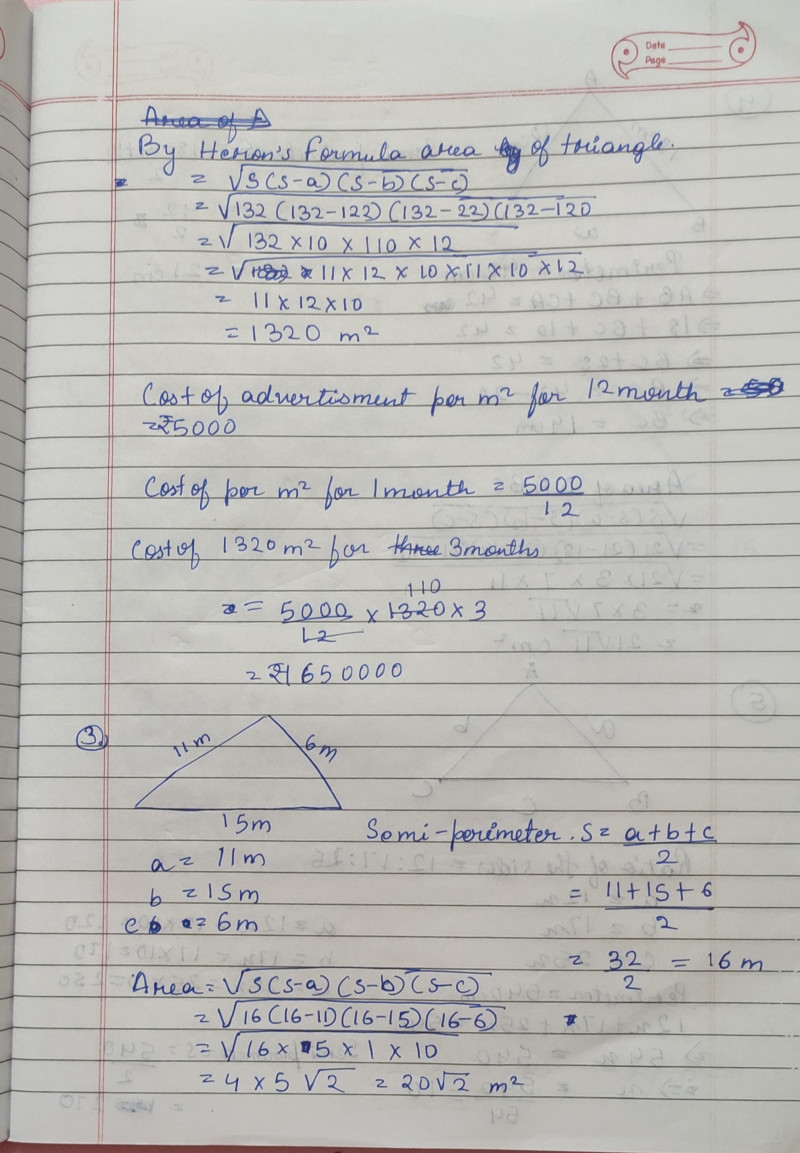 Date
Page
Area of Δ
By Heron's Formula area of triangle.
= √S(s-a)(s-b)(s-c)
= √132(132-122)(132-22)(132-120
= √132×10×110×12
= √11×12×10×11×10×12
= 11×12×10
= 1320 m²
Cost of advertisment per m² for 12 month =
=₹5000
Cost of per m² for 1 month = 5000/12
Cost of 1320 m² for three 3 months
110
= 5000/12 × 1320 × 3
= ₹1650000
3.
11m 6m
15m
Semi-perimeter. S = a+b+c/2
a = 11m
b = 15m
= 11+15+6/2
c = 6m
= 32/2 = 16 m
Area = √S(s-a)(s-b)(s-c)
= √16(16-11)(16-15)(16-6)
= √16×5×1×10
= 4×5√2 = 20√2 m²